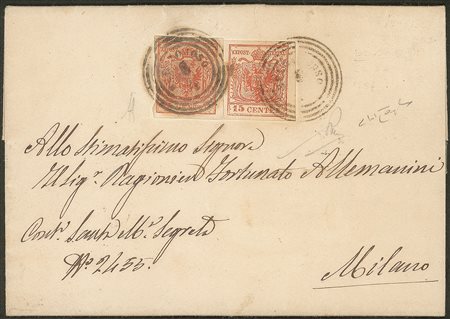 15 CENTES
Allo Stimatissimo Signor
Il Sigr. Ragioniere Fortunato Allemanini
Contr. Santa Ma. Segreta
No. 2455.
Milano